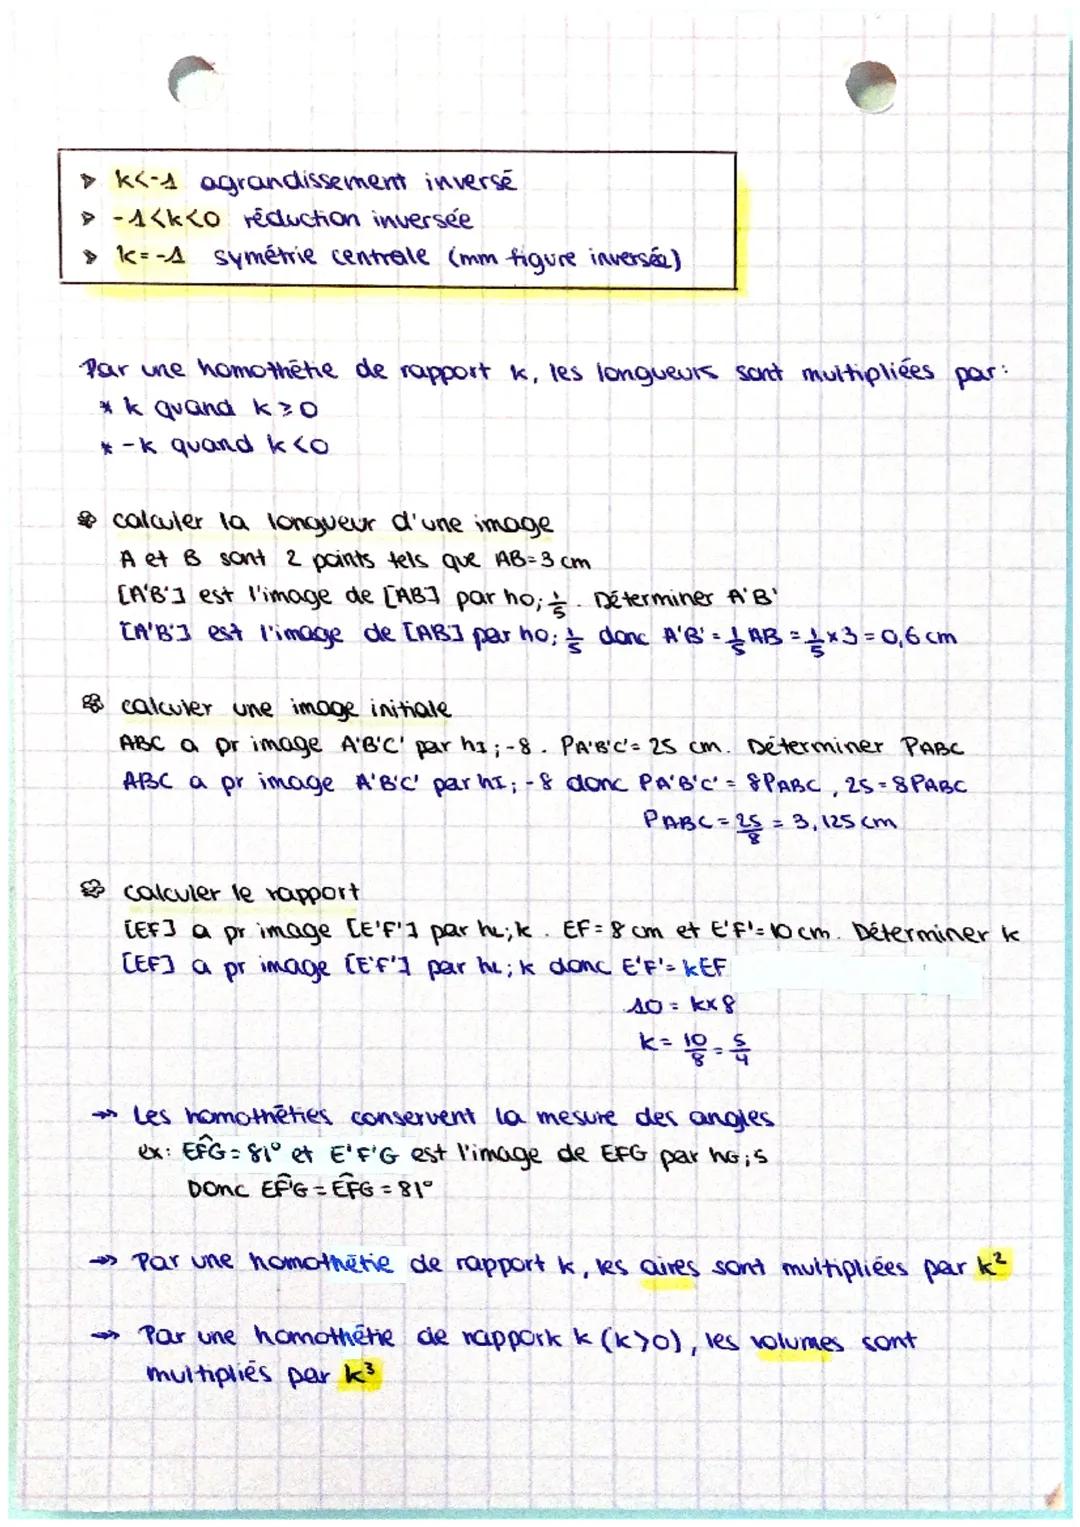 k<-1 agrandissement inversé
-1<k<0 réduction inversée
k=-1 symétrie centrale (mm figure inversée)
Par une homothétie de rapport k, les longueurs sont multipliées par:
* k quand k⩾0
* -k quand k<0
calculer la longueur d'une image
A et B sont 2 points tels que AB=3 cm
[A'B'] est l'image de [AB] par ho; 1/5. Déterminer A'B'
[A'B'] est l'image de [AB] par ho; 1/5 donc A'B' = 1/5 AB = 1/5 × 3 = 0,6 cm
calculer une image initiale
ABC a pr image A'B'C' par hI; -8. PA'B'C' = 25 cm. Déterminer PABC
ABC a pr image A'B'C' par hI; -8 donc PA'B'C' = 8PABC, 25 = 8PABC
PABC = 25/8 = 3,125 cm
calculer le rapport
[EF] a pr image [E'F'] par hL;k. EF = 8 cm et E'F' = 10 cm. Déterminer k
[EF] a pr image [E'F'] par hL; k donc E'F' = kEF
10 = k×8
k = 10/8 = 5/4
→ Les homothéties conservent la mesure des angles
ex: EF̂G = 81° et E'F'G est l'image de EFG par hG;5
Donc EF̂'G = EF̂G = 81°
→ Par une homothétie de rapport k, les aires sont multipliées par k²
→ Par une homothétie de rapport k (k>0), les volumes sont
multipliés par k³